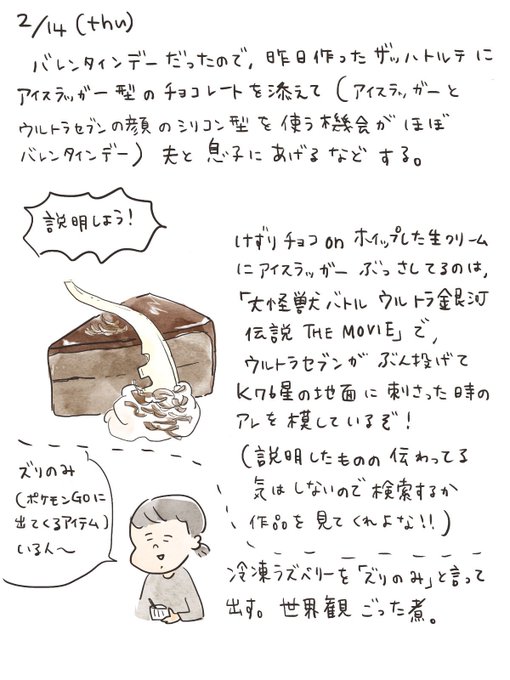 2/14 (thu)
バレンタインデーだったので、昨日作ったザッハトルテに
アイスラッガー型のチョコレートを添えて(アイスラッガーと
ウルトラセブンの顔のシリコン型を使う機会がほぼ
バレンタインデー)夫と息子にあげるなどする。
説明しよう!
けずりチョコonホイップした生クリーム
にアイスラッガーぶっさしてるのは、
「大怪獣バトル ウルトラ銀河
伝説 THE MOVIE」で、
ウルトラセブンがぶん投げて
K76星の地面に刺さった時の
アレを模しているぞ!
(説明したものの伝わってる
気はしないので検索するか
作品を見てくれよな!!)
ズリのみ
(ポケモンGOに
出てくるアイテム)
いる人〜
冷凍ラズベリーを「ズリのみ」と言って
出す。世界観ごった煮。